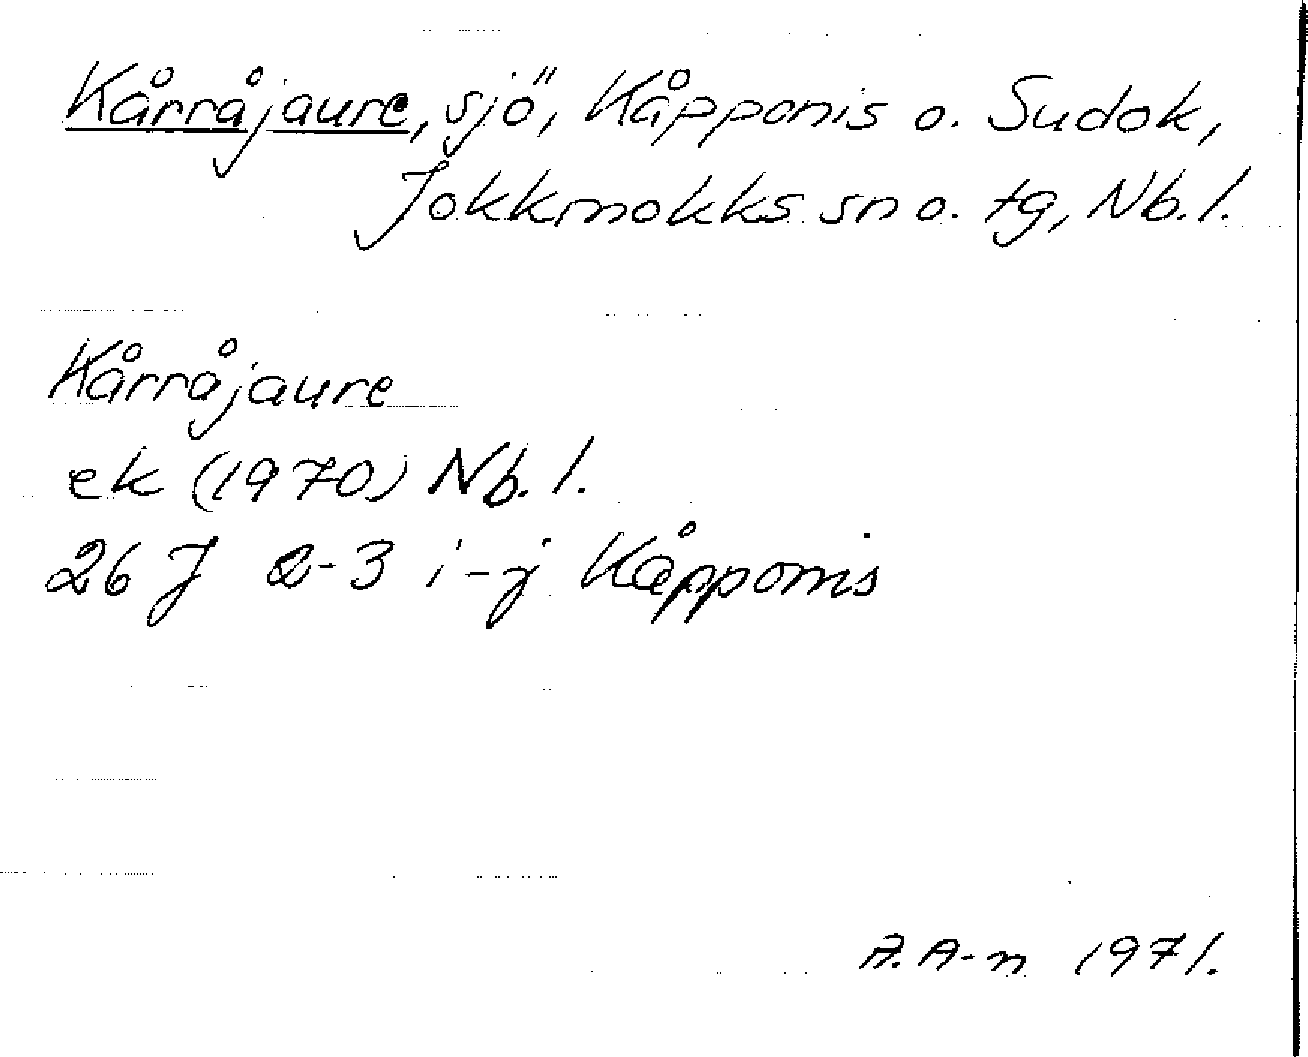 Kårråjaure, sjö, Kåpponis o. Sudok,
Jokkmokks sn o. tg, Nb. l.
Kårråjaure
ek (1970) Nb. l.
26 J 2-3 i-j Kåpponis
A. A-n 1971.